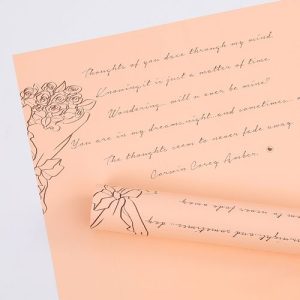 Thoughts of you doze through my mind.
Knowing it is just a matter of time.
Wondering, will u ever be mine?
You are in my dreams, night, and sometimes
The thoughts seem to never fade away.
Corwin Corey Amber.
to never fade away.
night, and sometimes... day